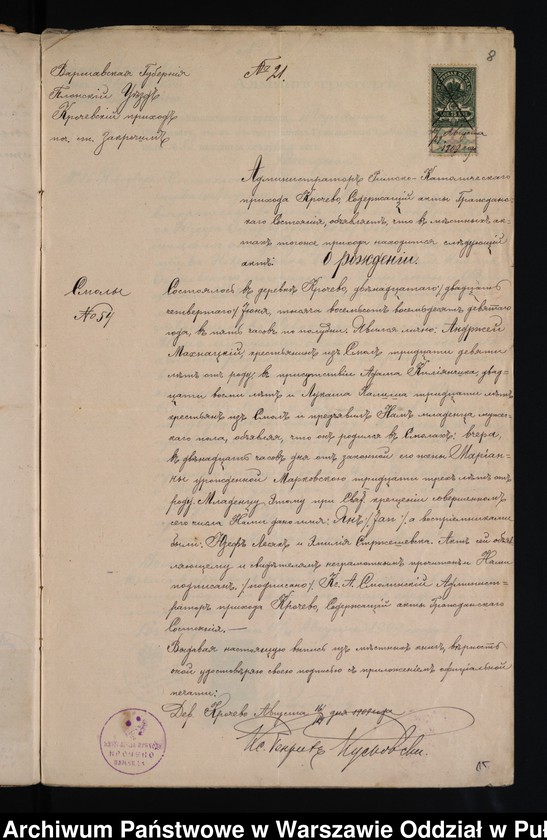 8
Варшавская Губернія
Плонскій Уѣздъ
Крочевскій приходъ
по ст. Закрочимъ
№ 21.
Администраторъ Римско-Католическаго
прихода Крочево, Содержащій акты Граждан-
скаго Состоянія, объявляетъ, что въ мѣстныхъ ак-
тахъ тогоже прихода находится слѣдующій
актъ: О рожденіи.
Смолы
№ 54
Состоялось въ деревнѣ Крочево, двѣнадцатаго/двадцать
четвертаго/ Іюня, тысяча восемьсотъ восемьдесятъ девятаго
года, въ пять часовъ по полудни. Явился лично: Андржей
Махнацкій, крестьянинъ изъ Смолъ тридцати девяти
лѣтъ отъ роду, въ присутствіи Адама двад-
цати восьми лѣтъ и Лукаша Калиша тридцати лѣтъ
крестьянъ изъ Смолъ и предъявилъ Намъ младенца мужес-
каго пола, объявляя, что онъ родился въ Смолахъ: вчера,
въ двѣнадцать часовъ дня отъ законной его жены Маріан-
ны урожденной Марковского тридцати трехъ лѣтъ отъ
роду. Младенцу этому при Свят. крещеніи совершенномъ
сего числа Нами дано имя: Янъ /Jan/, а воспріемниками
были: Іозефъ Лесякъ и Эмилія Актъ сей объя-
вляющему и свидѣтелямъ неграмотнымъ прочитанъ Нами
подписанъ. /подписано/ Кс. А. Смолинскій Администра-
раторъ прихода Крочево, Содержащій акты Гражданскаго
Состоянія.—
Выдавая настоящую выпись изъ мѣстныхъ книгъ, вѣрность
оной удостовѣряю своею подписью съ приложеніемъ официальной
печати:
Дер. Крочево Августа дня года
Кс. Генрикъ
15
Archiwum Państwowe w Warszawie Oddział w Puł